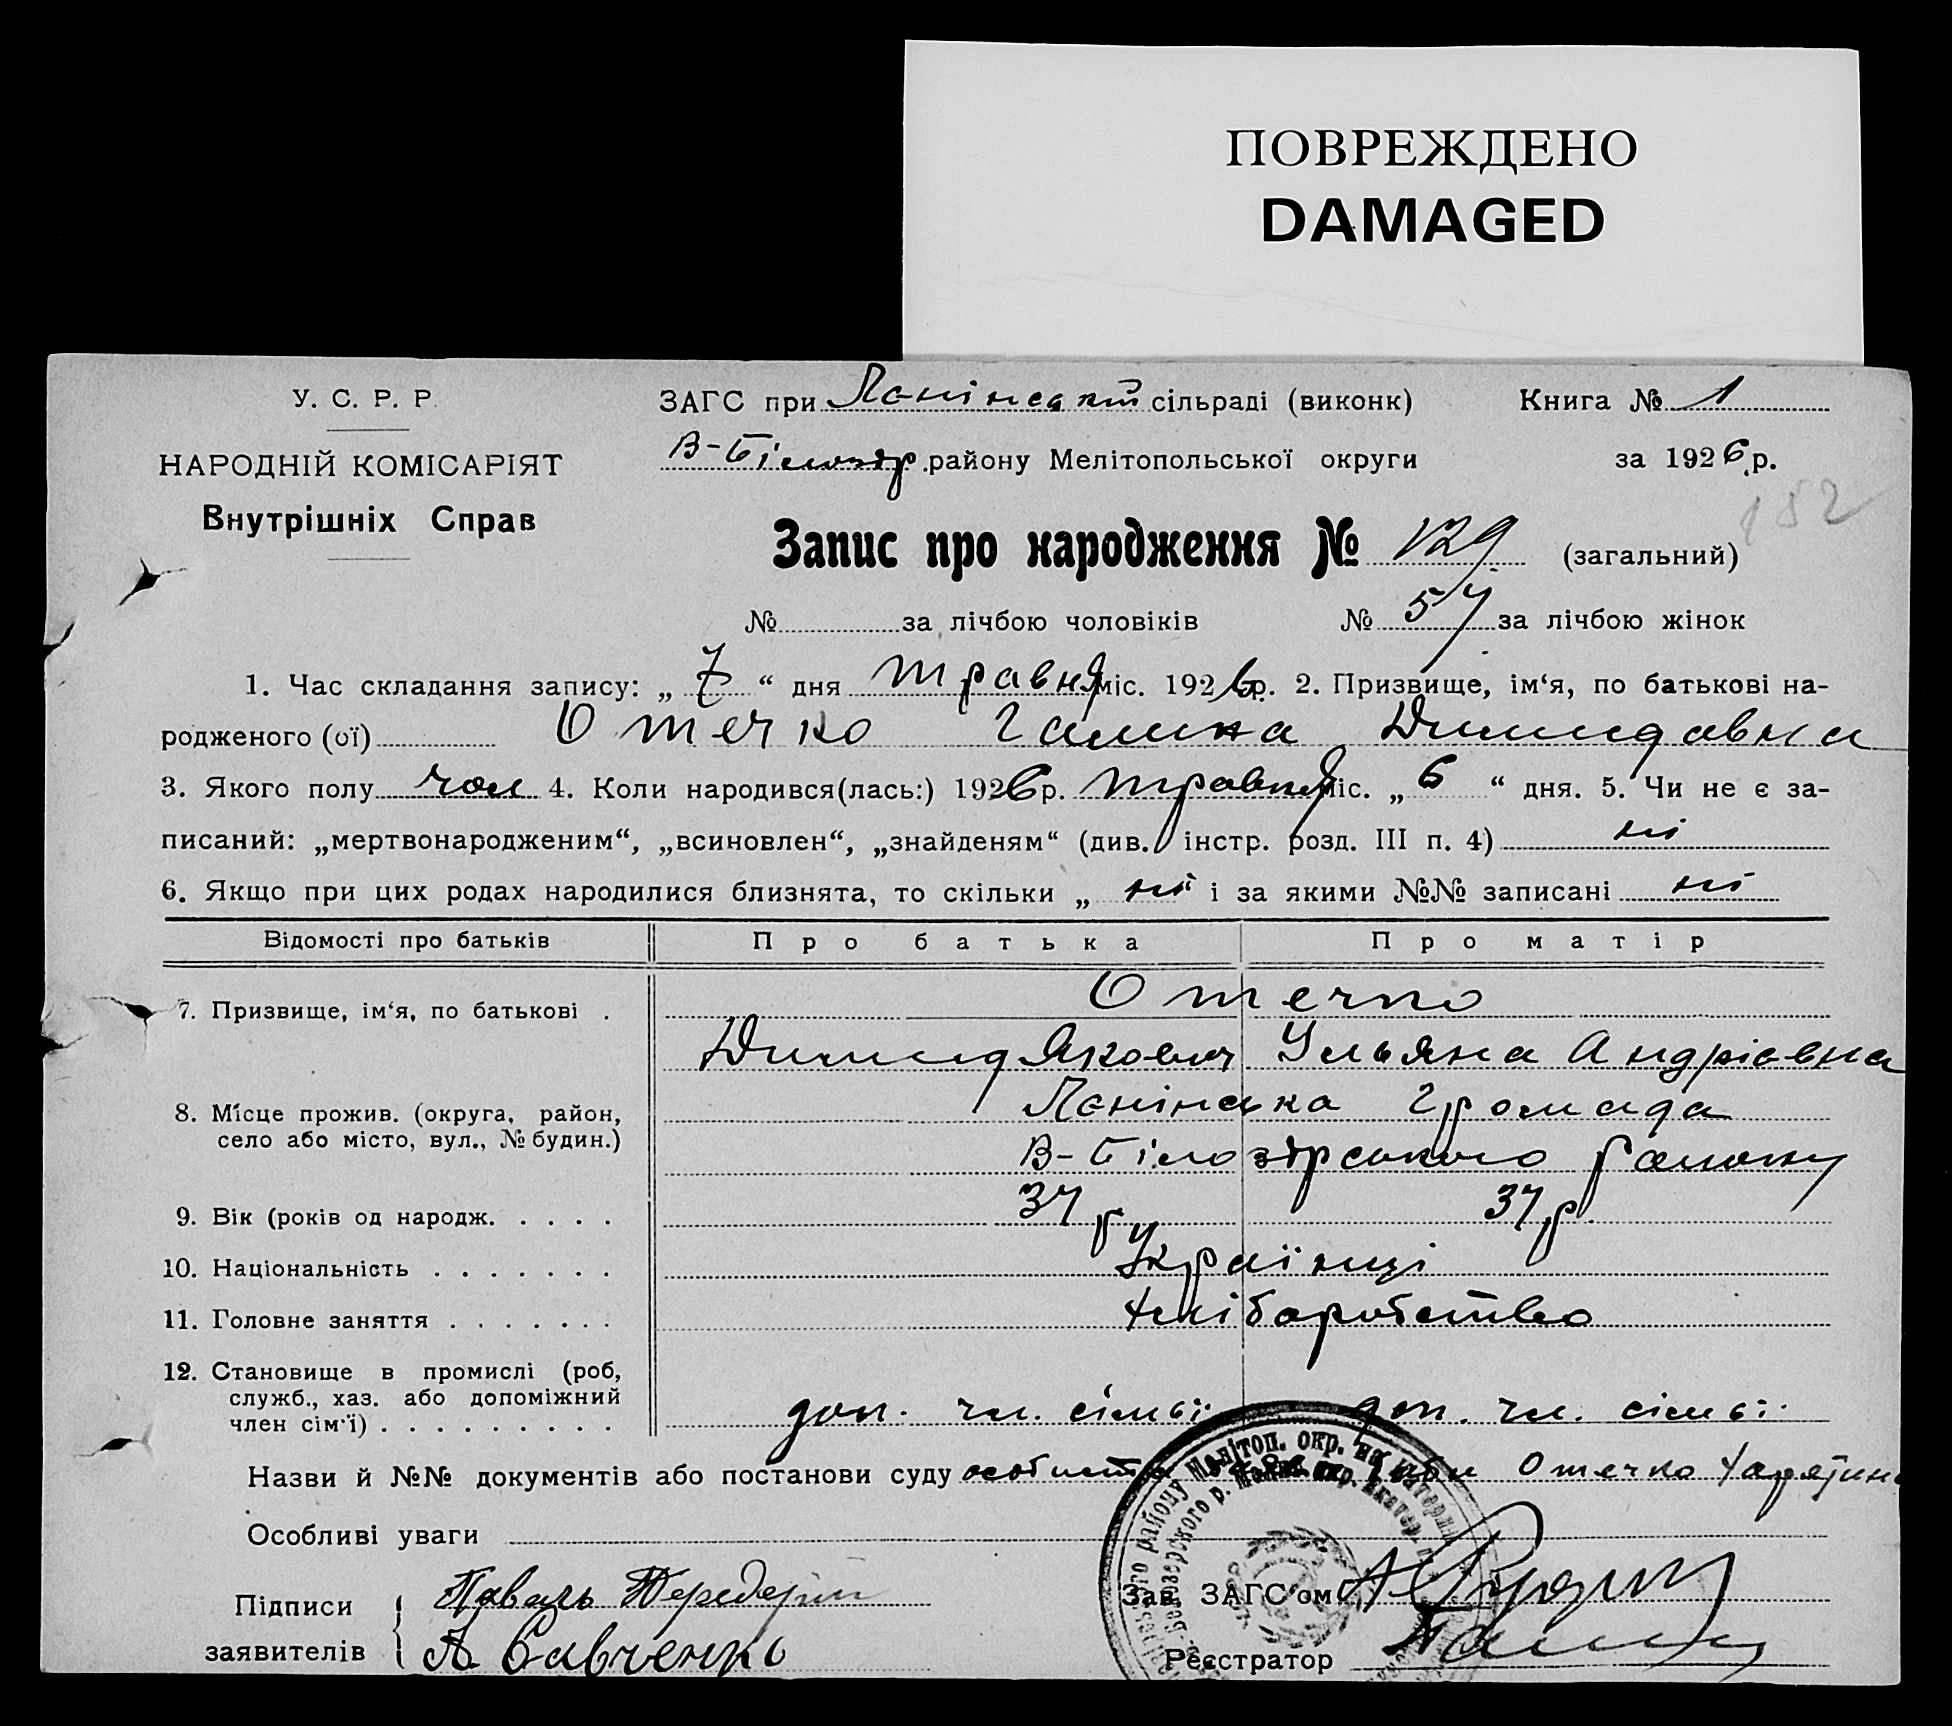 ПОВРЕЖДЕНО
DAMAGED
У. С. Р. Р.
ЗАГС при Ленінській сільраді (виконк)
Книга № 1
НАРОДНІЙ КОМІСАРІЯТ
В-Білозір. району Мелітопольської округи
за 1926 р.
Внутрішніх Справ
152
Запис про народження № 129 (загальний)
№ за лічбою чоловіків № 57 за лічбою жінок
1. Час складання запису: „ 7 “ дня травня міс. 1926 р. 2. Призвище, ім‘я, по батькові на-
родженого (ої) Отечко Галина Димидавна
3. Якого полу чол 4. Коли народився(лась:) 1926 р. травня міс. „ 6 “ дня. 5. Чи не є за-
писаний: „мертвонародженим“, „всиновлен“, „знайденям“ (див. інстр. розд. III п. 4) ні
6. Якщо при цих родах народилися близнята, то скільки „ ні “ і за якими №№ записані ні
Відомості про батьків Про батька Про матір
7. Призвище, ім‘я, по батькові . Отечко
Димид Якович Ульяна Андріевна
8. Місце прожив. (округа, район, Ленінська Громада
село або місто, вул., № будин.) В-Білозірського району
9. Вік (років од народж. . . . . 37 р 37 р.
10. Національність . . . . . . . Українці
11. Головне заняття . . . . . . . хліборобство
12. Становище в промислі (роб,
служб., хаз. або допоміжний
член сім‘ї) . . . . . . . . . доп. чл. сімьї доп. чл. сімьї.
Назви й №№ документів або постанови суду Отечко
Особливі уваги
Підписи Павель
Зав. ЗАГС‘ом
заявителів А. Савченко
Реєстратор
району Меліт­оп. окр. на Катерин